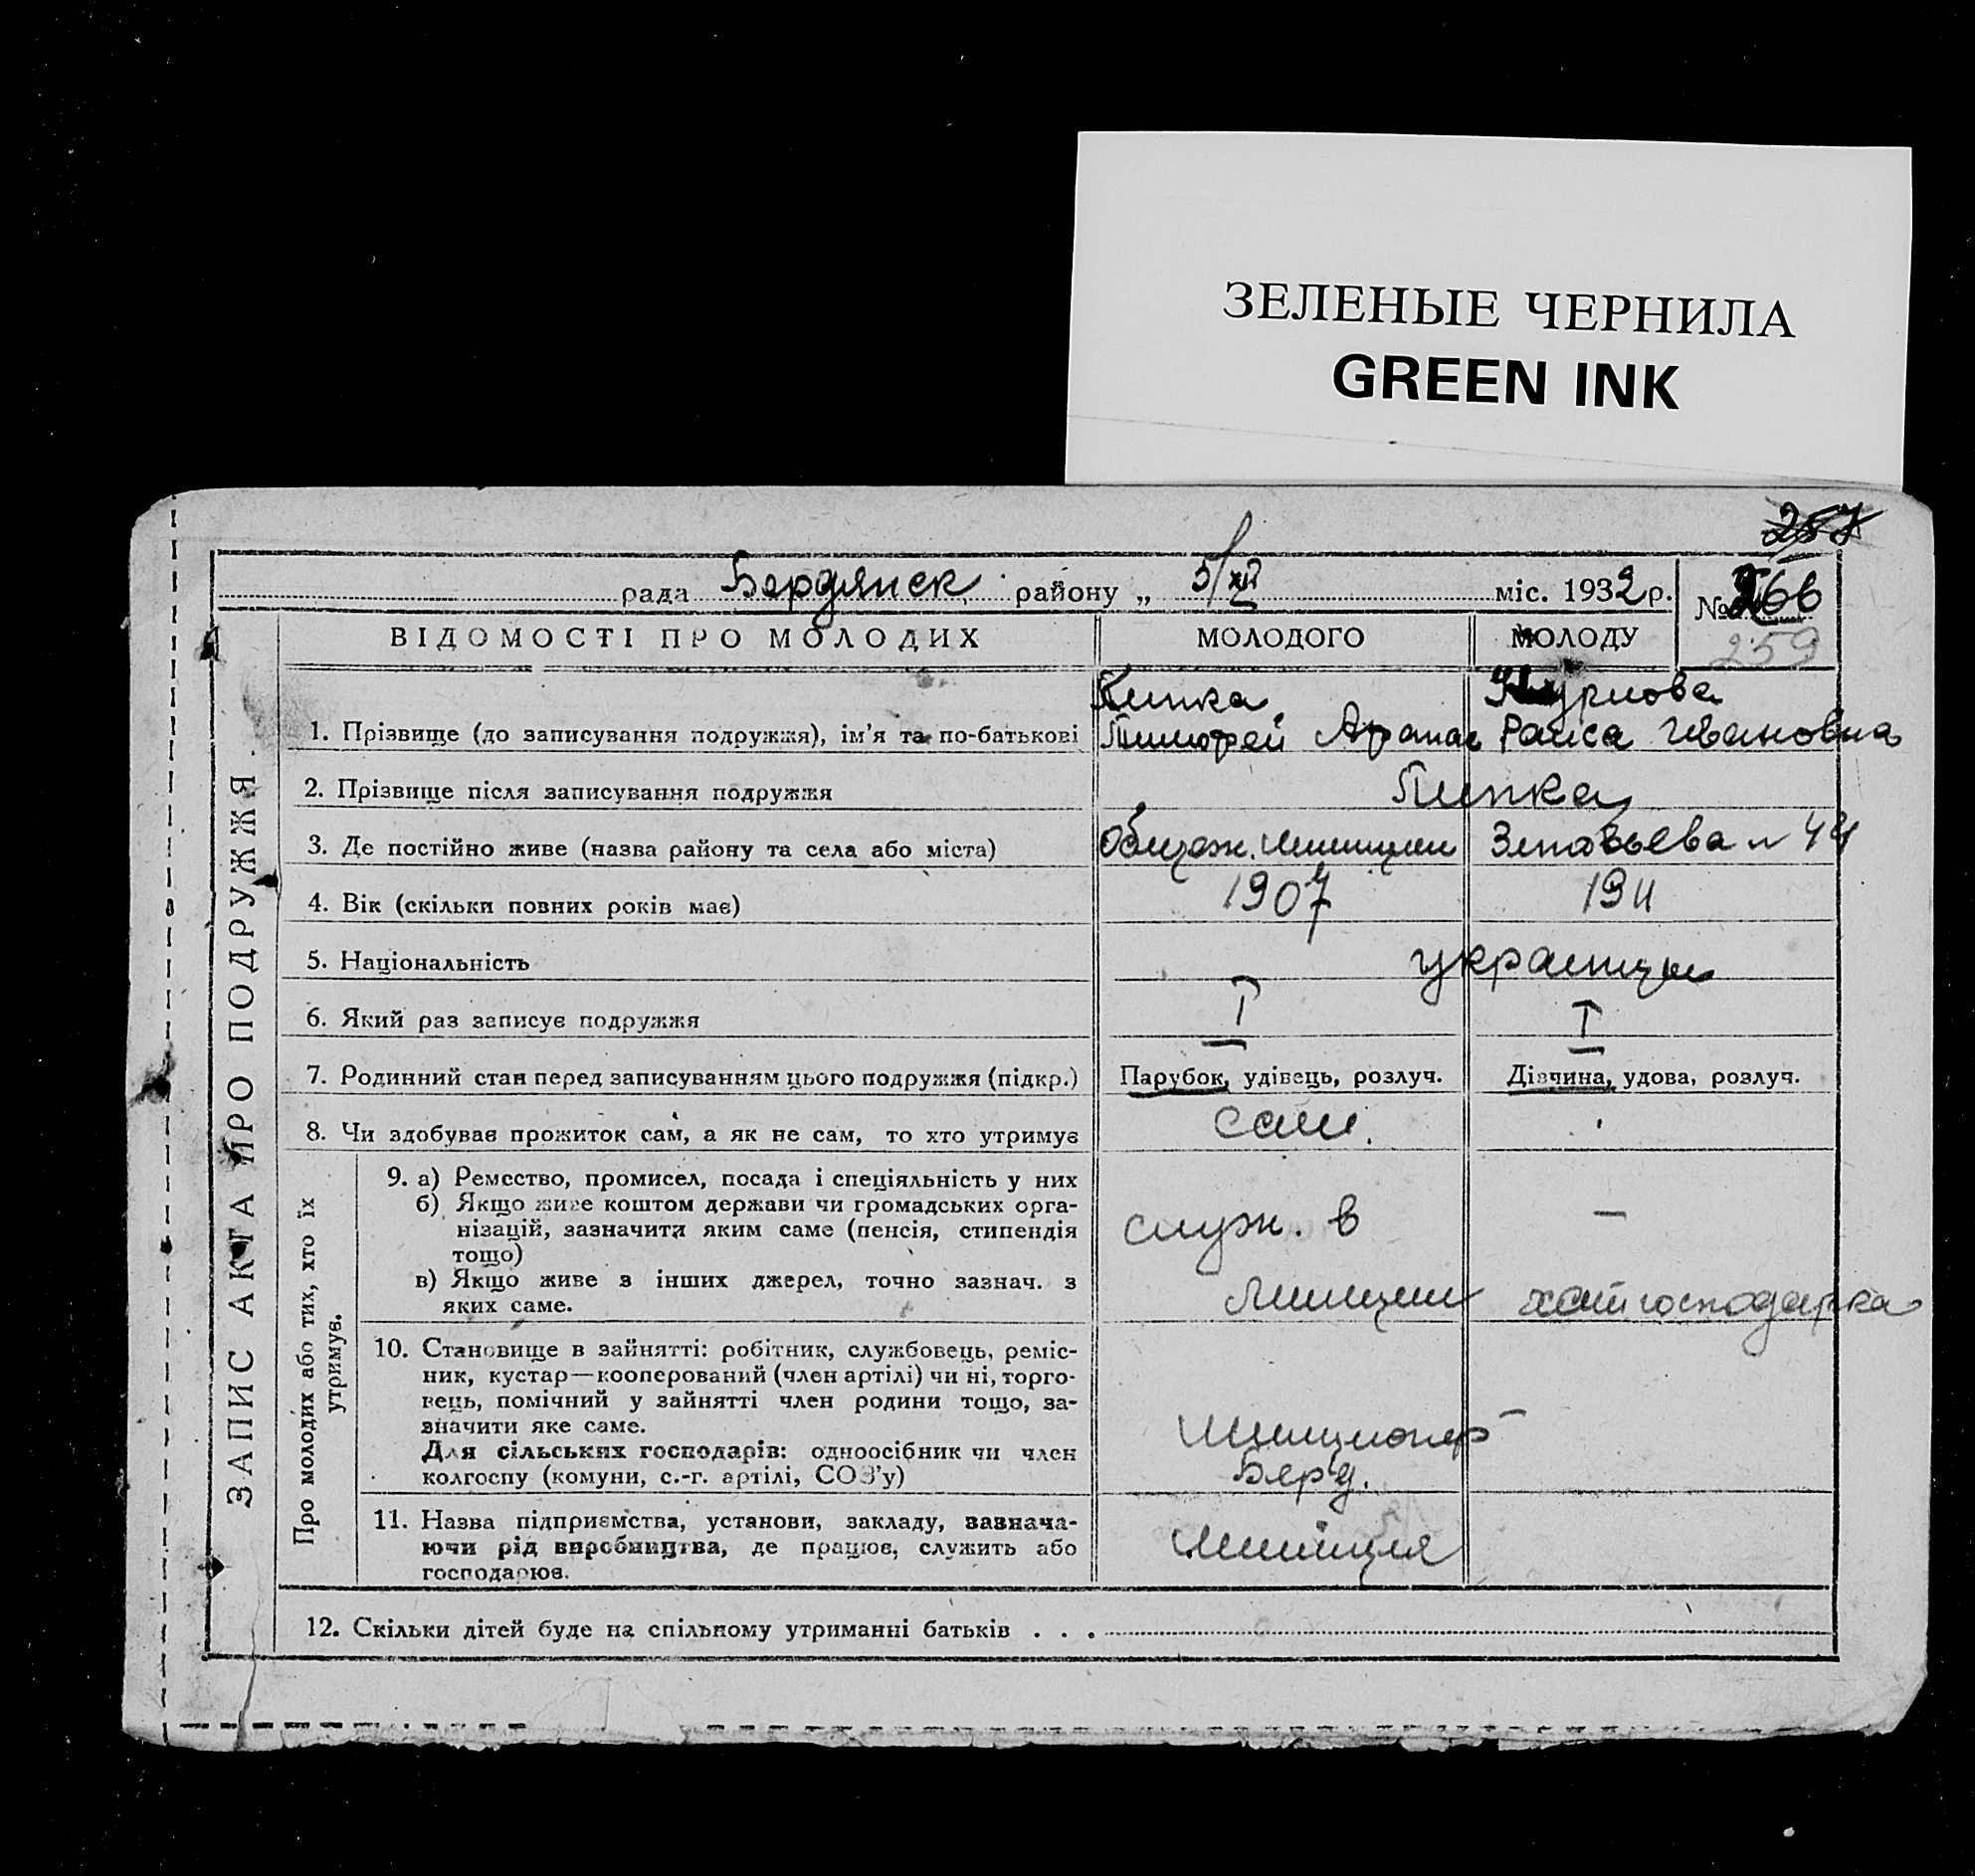 ЗЕЛЕНЫЕ ЧЕРНИЛА
GREEN INK
257
рада Бердянск району „ 5/XII міс. 1932 р.
№ 266
259
ЗАПИС АКТА ПРО ПОДРУЖЖЯ
ВІДОМОСТІ ПРО МОЛОДИХ МОЛОДОГО МОЛОДУ
1. Прізвище (до записування подружжя), ім'я та по-батькові
Тимофей Афанас
Раиса Ивановна
2. Прізвище після записування подружжя
3. Де постійно живе (назва району та села або міста) Общеж. Милиции Зиновьева
4. Вік (скільки повних років має) 1907 1911
5. Національність украинцы
6. Який раз записує подружжя I I
7. Родинний стан перед записуванням цього подружжя (підкр.) Парубок, удівець, розлуч. Дівчина, удова, розлуч.
8. Чи здобуває прожиток сам, а як не сам, то хто утримує сам.
Про молодих або тих, хто їх
утримує.
9. а) Ремество, промисел, посада і спеціяльність у них
б) Якщо живе коштом держави чи громадських орга-
нізацій, зазначити яким саме (пенсія, стипендія
тощо)
в) Якщо живе з інших джерел, точно зазнач. з
яких саме.
служ. в –
Милиции хатгосподарка
10. Становище в зайнятті: робітник, службовець, реміс-
ник, кустар—кооперований (член артілі) чи ні, торго-
вець, помічний у зайнятті член родини тощо, за-
значити яке саме.
Для сільських господарів: одноосібник чи член
колгоспу (комуни, с.-г. артілі, СОЗ'у)
Милиционер
Берд.
11. Назва підприємства, установи, закладу, зазнача-
ючи рід виробництва, де працює, служить або
господарює.
Милиция
12. Скільки дітей буде на спільному утриманні батьків . . .